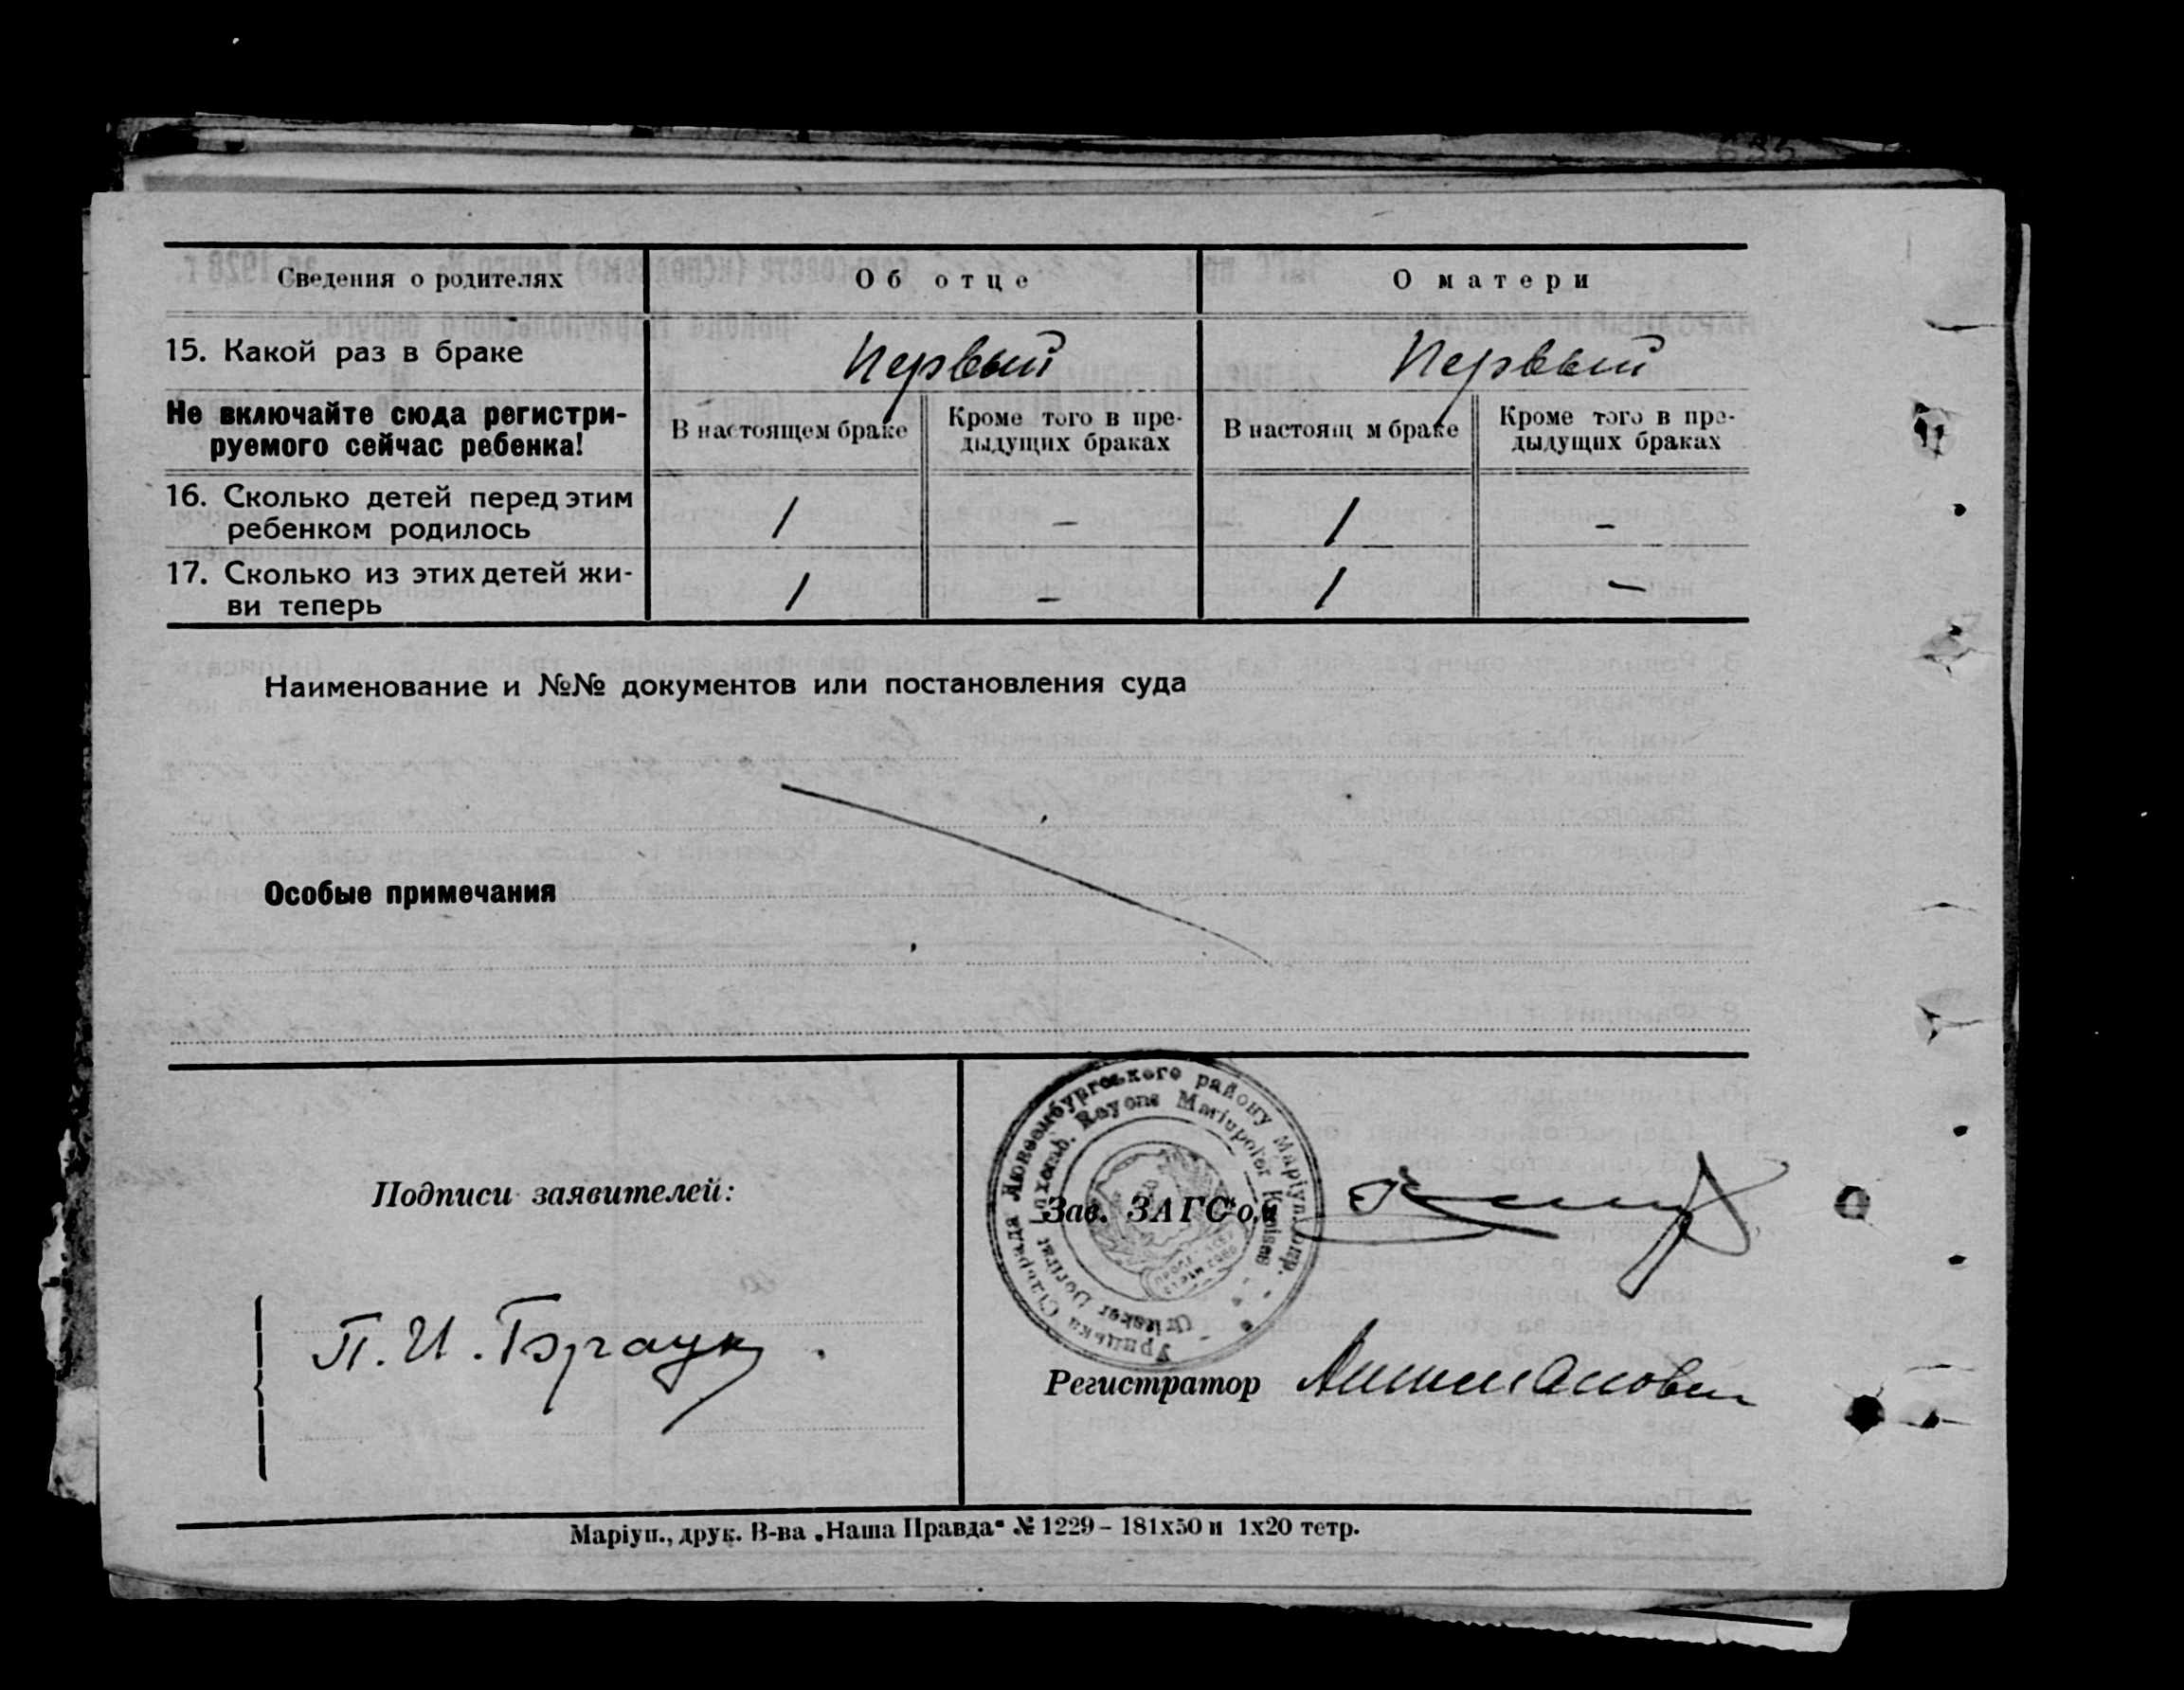 Сведения о родителях Об отце О матери
15. Какой раз в браке Первый Первый
Не включайте сюда регистри-
руемого сейчас ребенка!
В настоящем браке Кроме того в пре-
дыдущих браках
В настоящ м браке Кроме того в пре-
дыдущих браках
16. Сколько детей перед этим
ребенком родилось 1 - 1 -
17. Сколько из этих детей жи-
ви теперь 1 - 1 -
Наименование и №№ документов или постановления суда
Особые примечания
Подписи заявителей:
П. И. Браун.
Урицька Сільрада Люксембургського району Маріуп. Окр.
Uritzker Dorfrat Luxemb. Rayons Mariupoler Kreises
Зав. ЗАГС'ом
Регистратор
Маріуп., друк. В-ва „Наша Правда“ № 1229 – 181х50 и 1х20 тетр.